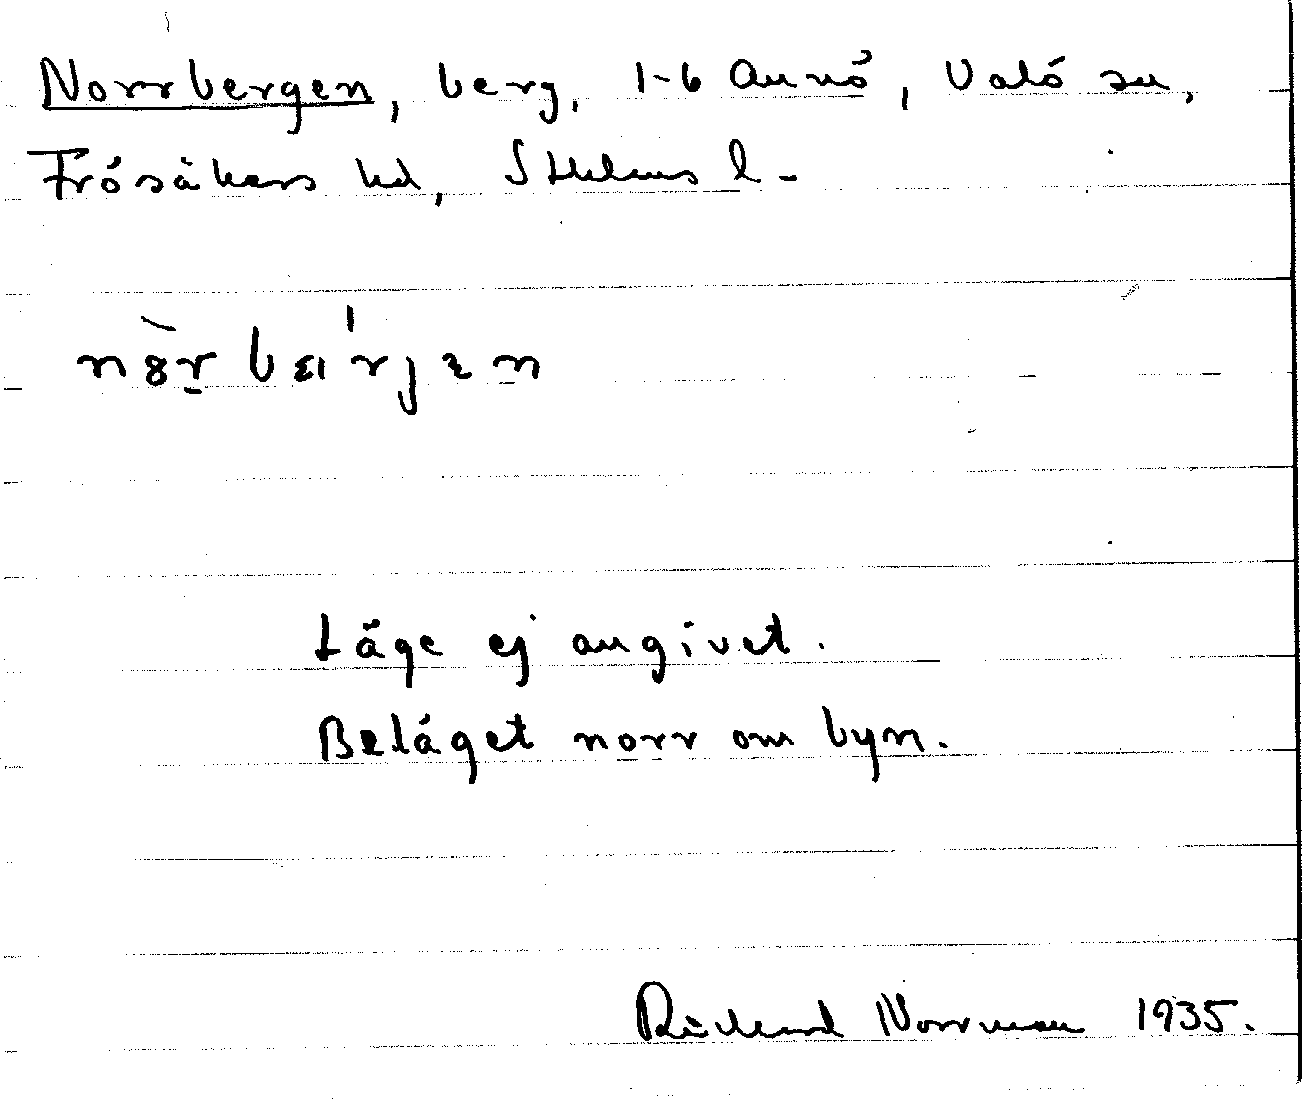 Norrbergen, berg, 1-6 Annö, Valö sn,
Frösåkers hd, Sthlms l.
Läge ej angivet.
Beläget norr om byn.
Richard Norrman 1935.